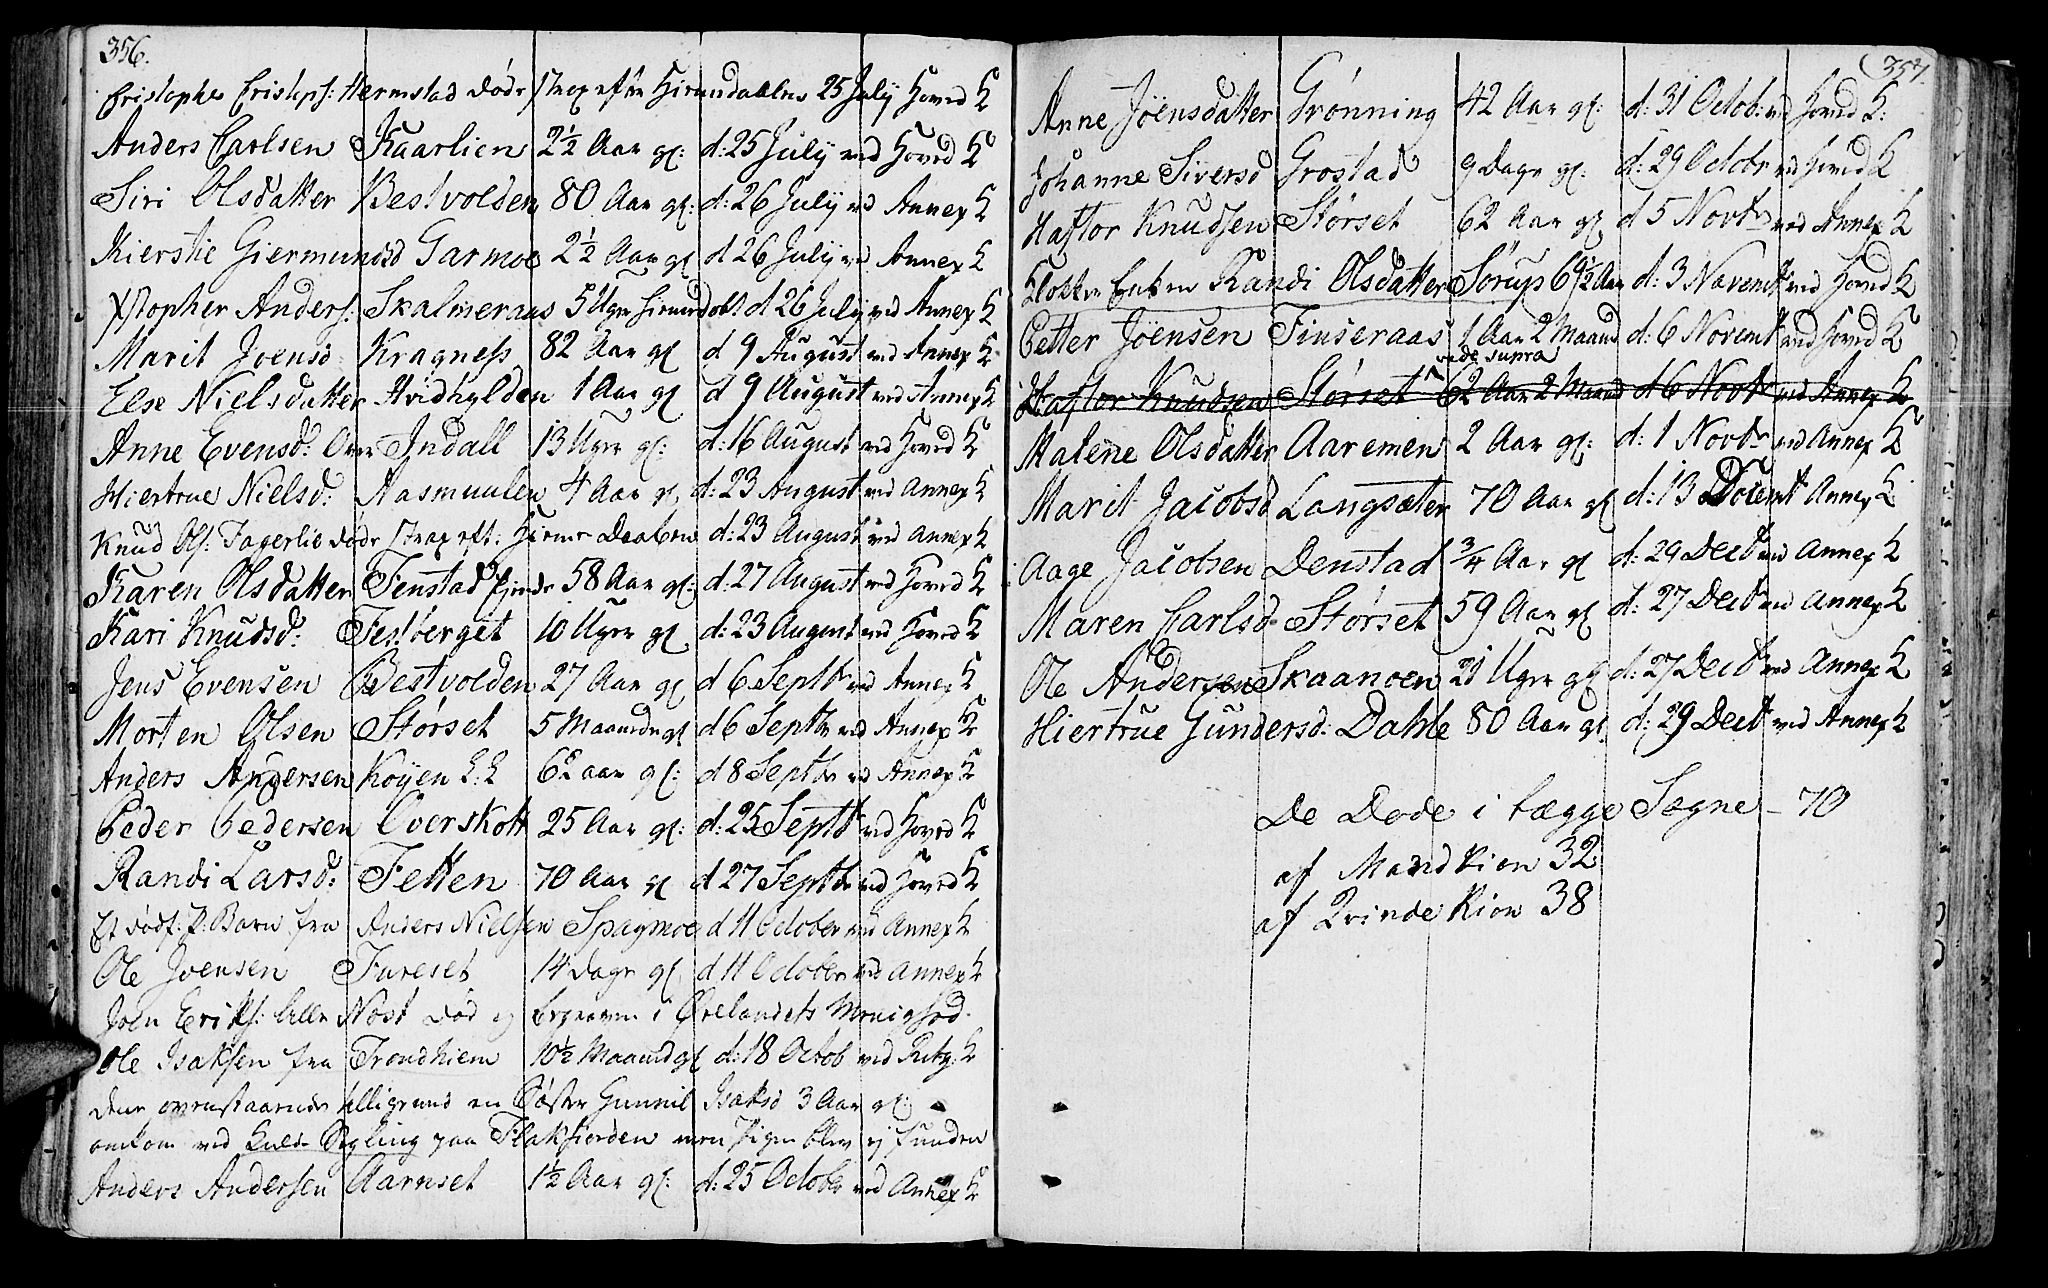 356.
Cristopher Cristophs: Hermstad døde strax efter Hiemdaaben 25 July Hoved K
Anders Carlsen Kaarlien 2½ Aar gl: d: 25 July ved Hoved K
Siri Olsdatter Bestvolden 80 Aar gl: d: 26 July ved Annex K
Kierstie Giermundsd Garmoe 2½ Aar gl d 26 July ved Annex K
Xstopher Anders: Skalmeraas 5 Uger hiemedøbt d 26 July ved Annex K
Marit Joensd: Kragness 82 Aar gl d 9 August ved Annex K
Else Nielsdatter Hvidhylden 1 Aar gl d 9 August ved Annex K
Anne Evensd: Over Indall 13 Uger gl: d: 16 August ved Hoved K
Hiertrue Nielsd: Aasmuulen 4 Aar gl. d: 23 August ved Annex K
Knud Ols: Fagerlie døde strax eft: Hieme Daaben d: 23 August ved Annex K
Karen Olsdatter Fenstad Ejende 58 Aar gl: d: 27 August ved Hoved K
Kari Knudsd: Festberget 10 Uger gl d: 23 August ved Hoved K
Jens Evensen Bestvolden 27 Aar gl d 6 Septbr ved Annex K
Morten Olsen Størset 5 Maaneder gl d 6 Septbr ved Annex K
Anders Andersen Køyen L: L 62 aar gl: d 8 Septbr ved Annex K
Peder Pedersen Overskott 25 Aar gl: d: 25 Septbr ved Hoved K
Randi Larsd: Fetten 70 Aar gl d 27 Septbr ved Hoved K
Et dødf: P: Barn fra Anders Nielsen Spagmoe d 11 October ved Annex K
Ole Joensen Fureset 14 dage gl d 11 October ved Annex K
Joen Eriks: lille Nøst død og begraven i Ørelandets Menighed.
Ole Isaksen fra Trondhiem 10½ Maaned gl d: 18 Octob ved K
Den ovenstaaende tilligemed en Søster Gunnil Isaksd 3 Aar gl:
omkom ved Kuld-Seyling paa Flakfiorden men Pigen blev ej funden
Anders Andersen Aarnset 1½ Aar gl: d: 25 Octobr ved Annex K
357.
Anne Jöensdatter Grønning 42 Aar gl: d: 31 Octob: ved Hoved K:
Johanne Siversd Grostad 9 Dage gl: d: 29 Octobr ved Hoved K
Haftor Knudsen Størset 62 Aar gl d 5 Novbr ved Annex K
Klokker Enken Randi Olsdatter Sørup 69½ Aar d: 3 Novembr ved Hoved K
Petter Jöensen Finseraas 1 Aar 2 Maaned d: 6 Novembr ved Hoved K
vide supra
Haftor Knudsen Størset 62 Aar 2 Maaned d 6 Novbr ved Annex K
Malene Olsdatter Aaremen 2 Aar gl: d: 1 Novbr ved Annex K
Marit Jacobsd Langsæter 70 Aar gl d: 13 Annex K
Aage Jacobsen Denstad ¾ Aar gl d: 29 Decbr ved Annex K
Maren Carlsd Størset 59 Aar gl d: 27 Decbr ved Annex K
Ole Andersen Skaanoen 21 Uger gl d: 27 Decbr ved Annex K
Hiertrue Gundersd: Dahle 80 Aar gl d: 29 Decbr ved Annex K
De Døde i begge Sogne – 70
af Mandkion 32
af Qvinde Kion 38